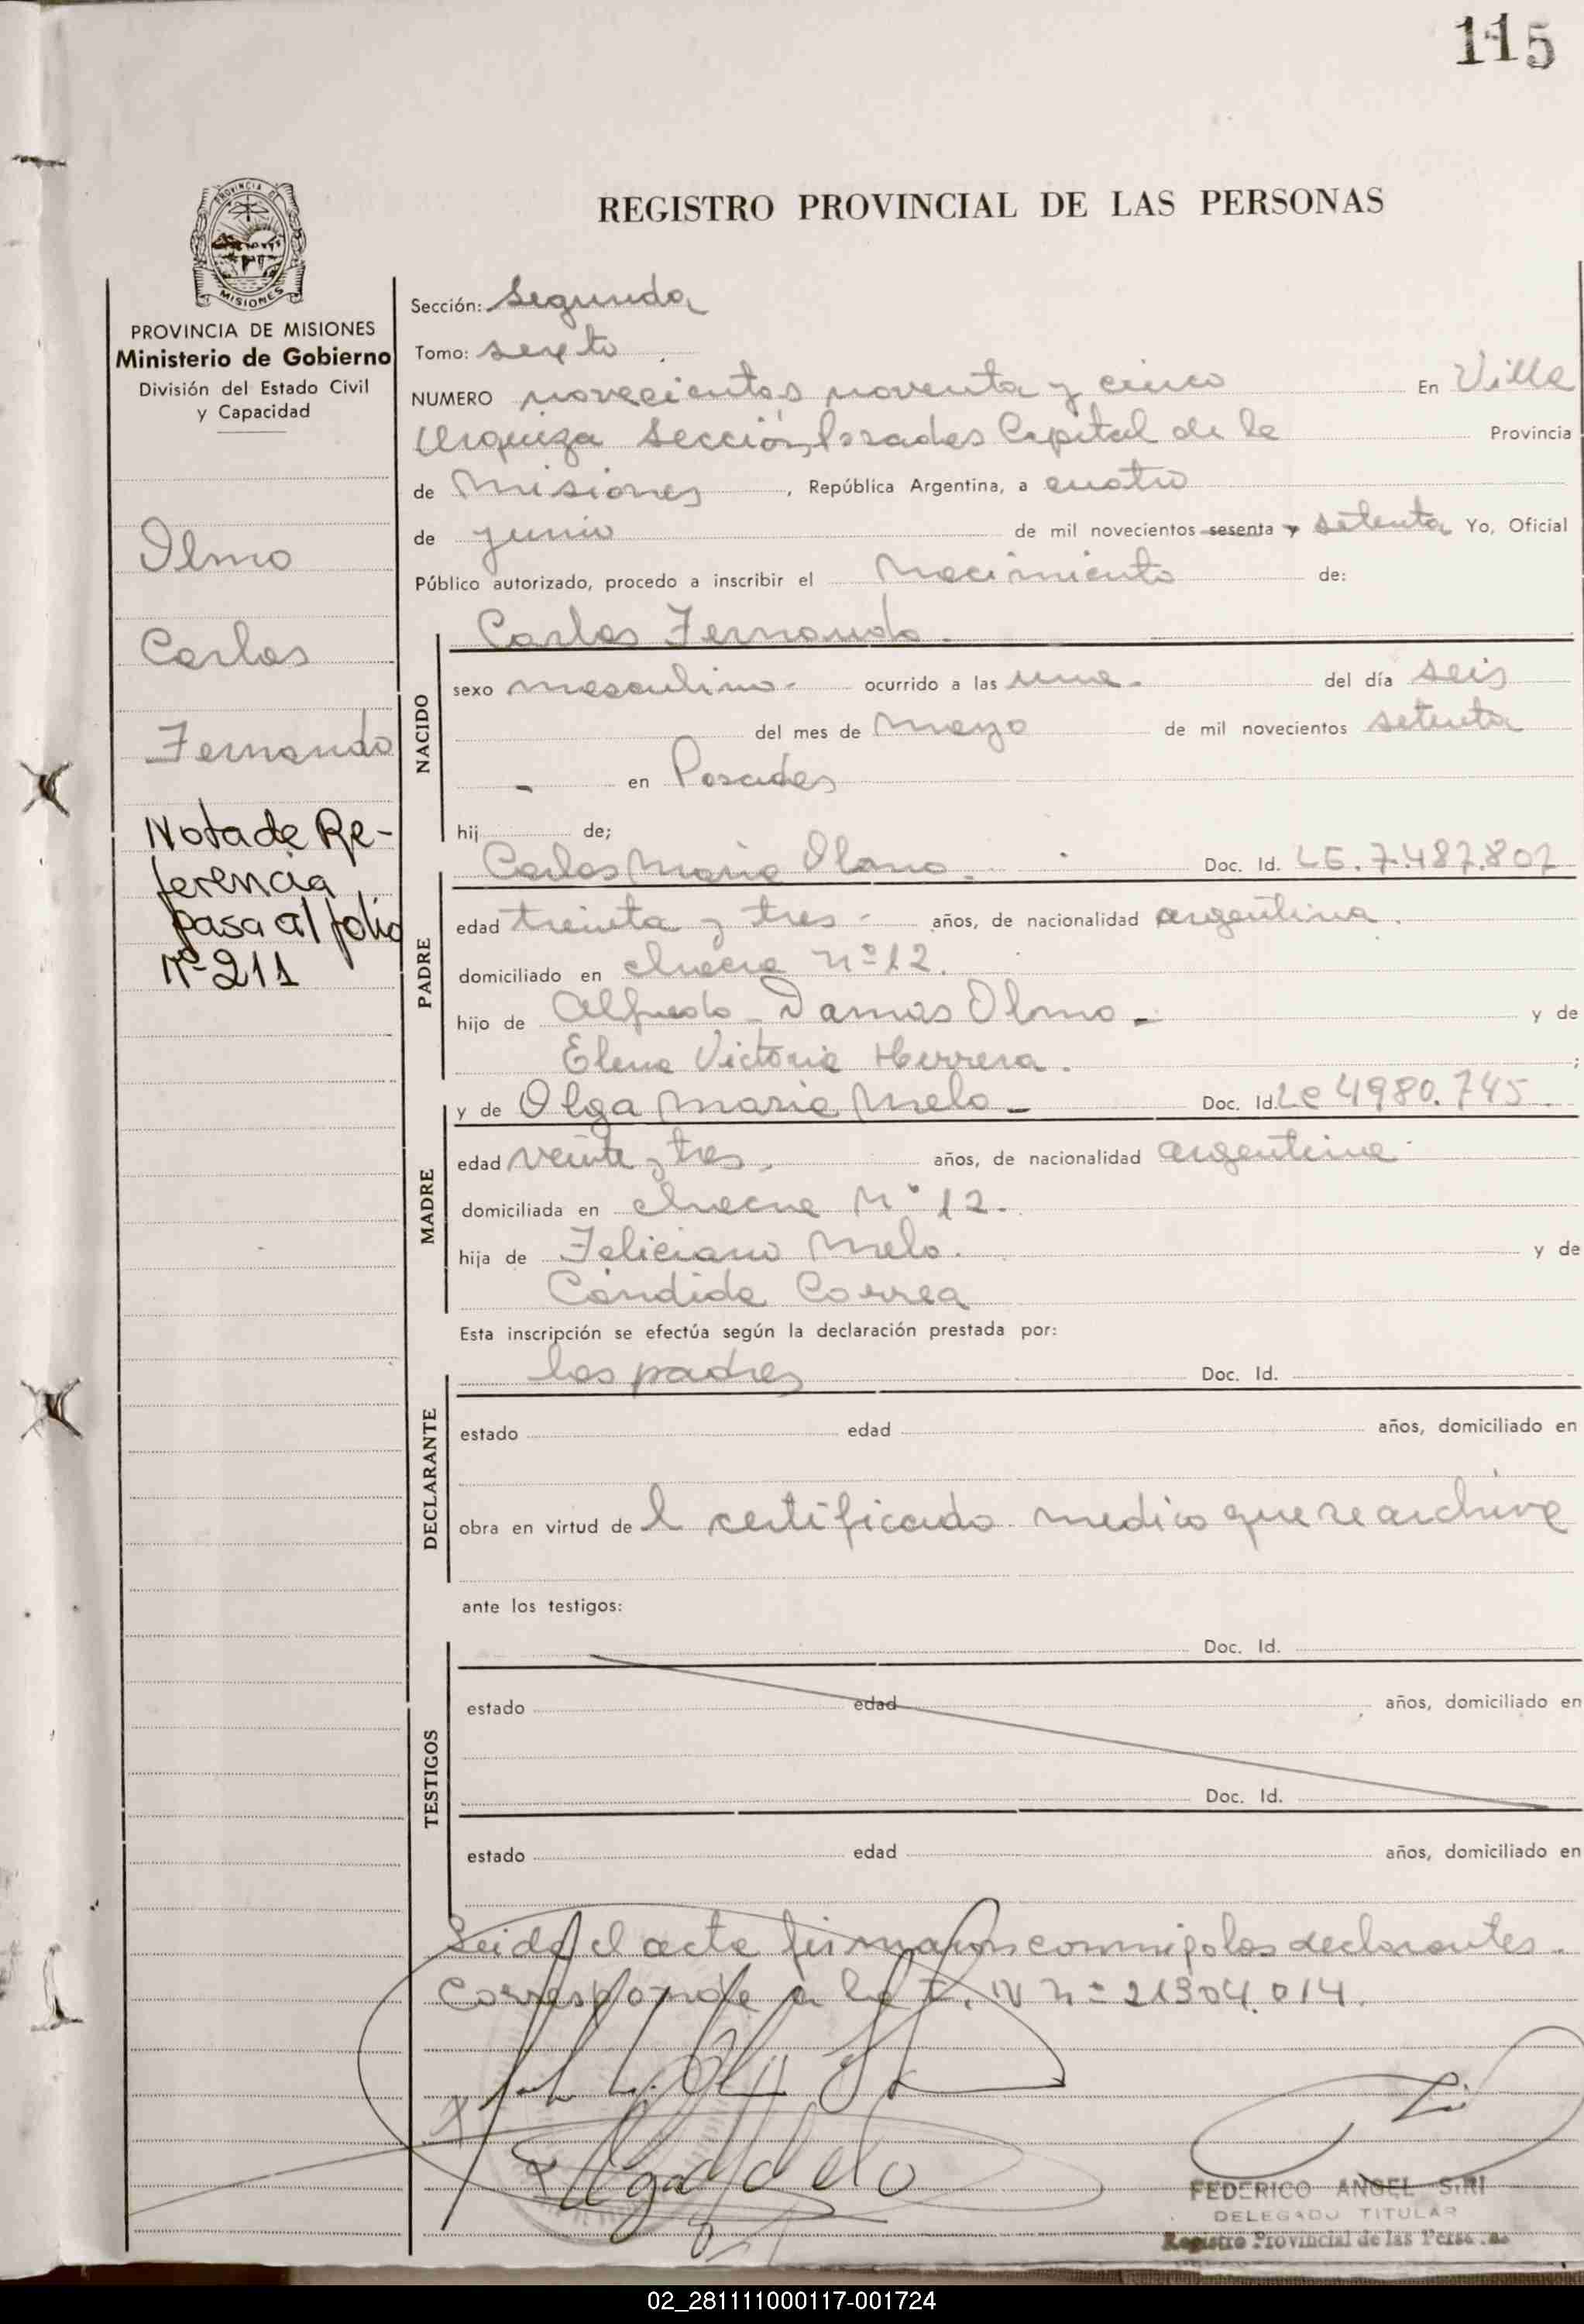 115
PROVINCIA DE
MISIONES
REGISTRO PROVINCIAL DE LAS PERSONAS
PROVINCIA DE MISIONES
Ministerio de Gobierno
División del Estado Civil
y Capacidad
Olmo
Carlos
Fernando
Nota de Re-
ferencia
pasa al folio
Nº 211
Sección: Segunda
Tomo: sexto
NUMERO novecientos noventa y cinco En Villa
Urquiza Sección Posadas Capital de la Provincia
de Misiones, República Argentina, a cuatro
de junio de mil novecientos sesenta y setenta Yo, Oficial
Público autorizado, procedo a inscribir el Nacimiento de:
Carlos Fernando.
NACIDO
sexo masculino.- ocurrido a las una.- del día seis
del mes de mayo de mil novecientos setenta
- en Posadas
hij de;
PADRE
Carlos Maria Olmo.- Doc. Id. LE. 7.487.802
edad treinta y tres - años, de nacionalidad argentina.
domiciliado en chacra nº 12.
hijo de Alfredo Damas Olmo.- y de
Elena Victoria Herrera. ;
MADRE
y de Olga Maria Melo.- Doc. Id. LC 4980.745.
edad veinte y tres. años, de nacionalidad argentina
domiciliada en chacra Nº 12.
hija de Feliciano Melo. y de
Cándida Correa
Esta inscripción se efectúa según la declaración prestada por:
DECLARANTE
los padres Doc. Id.
estado edad años, domiciliado en
obra en virtud de l certificado medico que se archiva
ante los testigos:
TESTIGOS
Doc. Id.
estado edad años, domiciliado en
Doc. Id.
estado edad años, domiciliado en
Leida el acta firmaron conmigo los declarantes.
Corresponde a la L. N nº 21304.014.
Olga Melo
FEDERICO ANGEL SIRI
DELEGADO TITULAR
Registro Provincial de las Personas
02_281111000117-001724